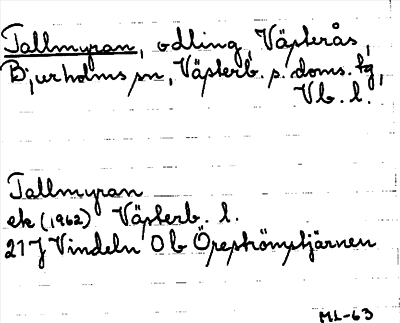 Tallmyran, odling, Västerås,
Bjurholms sn, Västerb. s. doms. tg,
Vb. l.
Tallmyran
ek (1962) Västerb. l.
21J Vindeln 0b Öreströmstjärnen
ML-63